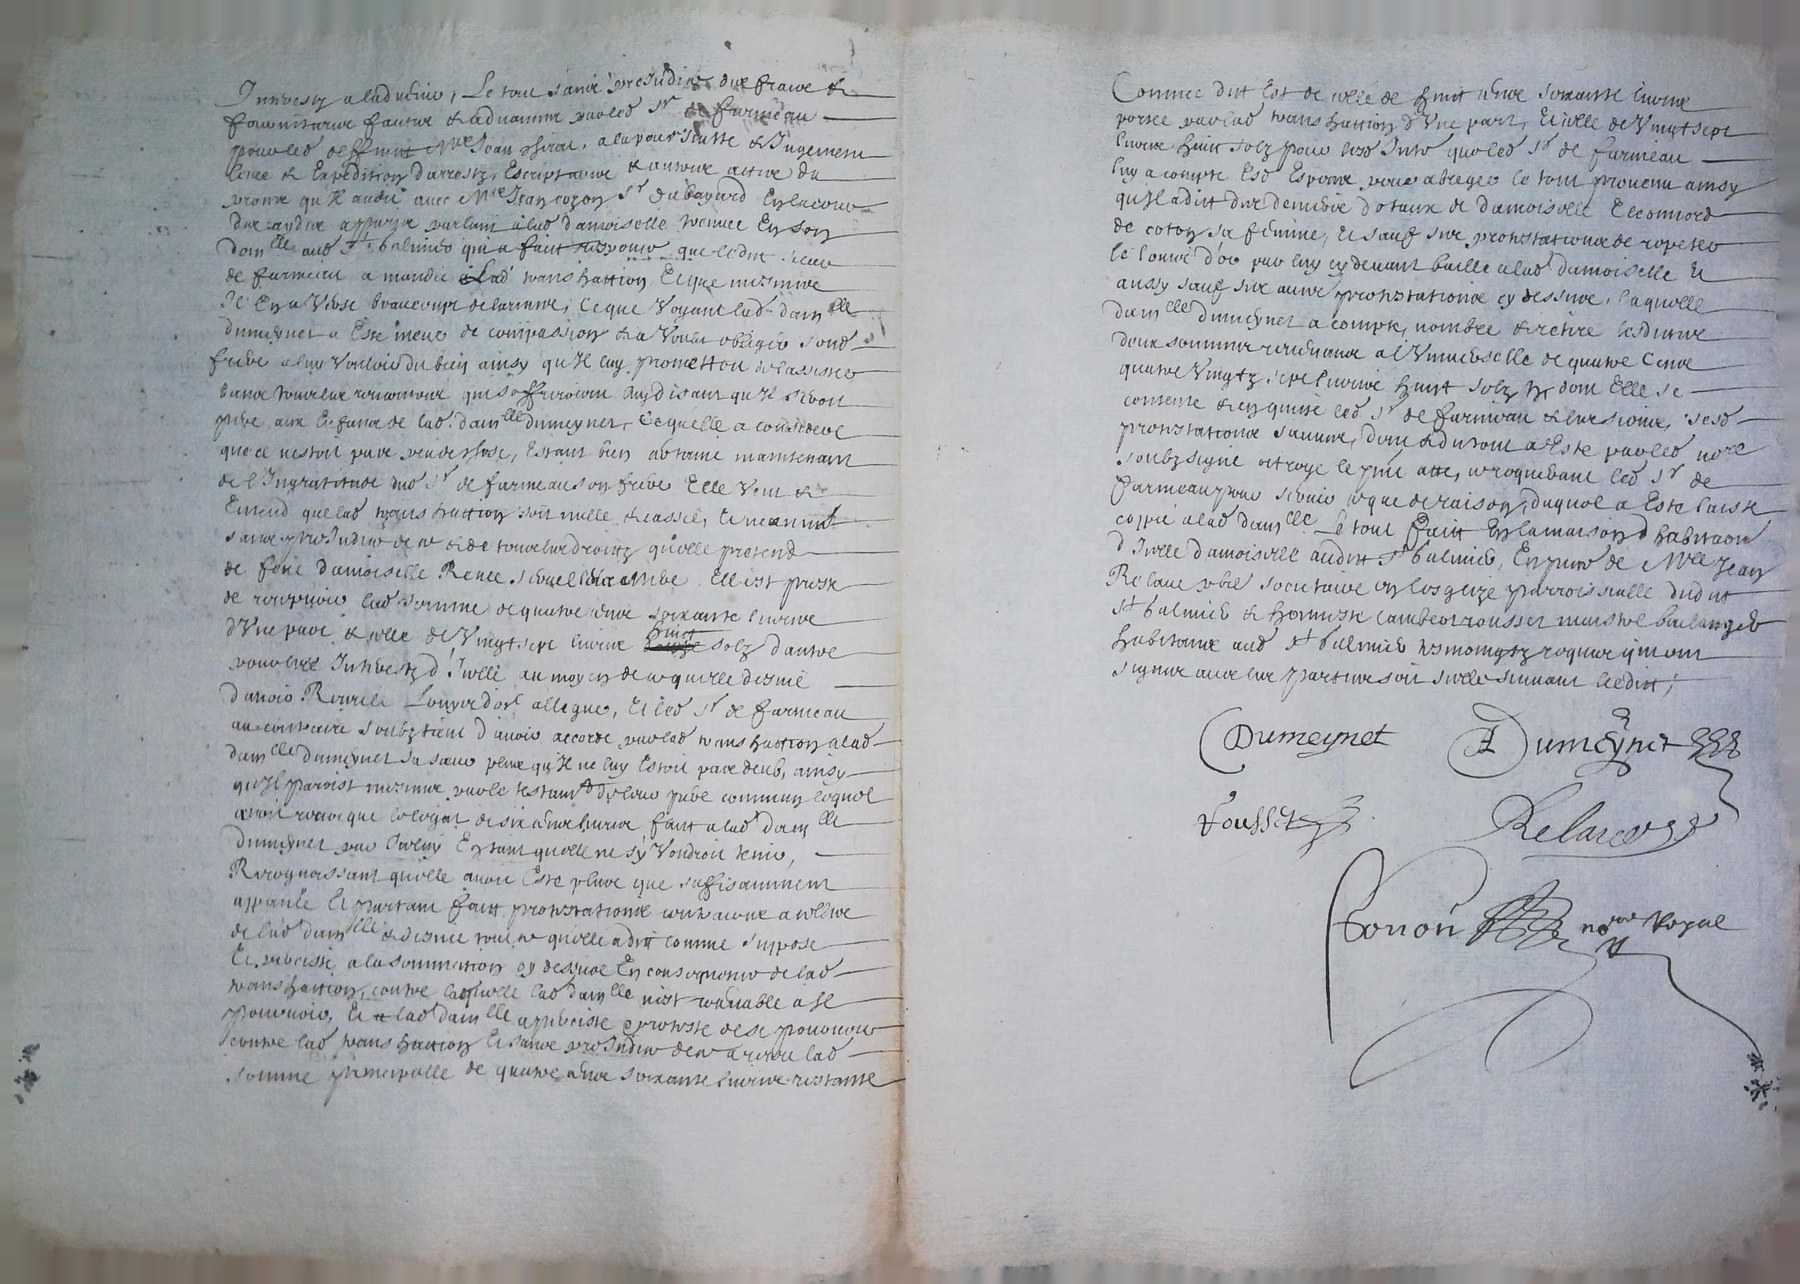 Interestz a lad venir, Le tout sans preJudice des fraix &
fournitures faictes & advanances par led Sr de farmeau
pour led deffunct Mre Jean a la poursuitte & Jugement
& Expedition d'arrestz, Escriptures & autres actes du
proces qu'Il audit avec Mre Jean cozon Sr du bayard En la cour
par luy a lad damoiselle renee En son
domlle aud St balmier qui a faict responce que ledit sieur
de farmeau a mandie Lad transaction Et que mesmes
Il En a Verse beaucoupt de larmes, Ce que Voyant lad damlle
dumeynet a Este meue de compassion & a Voulu obliger sond
frere a luy Vouloir du bien ainsy qu'Il luy promettoit de l'assister
dans toutes les rencontres qui s'offriroient luy disant qu'Il seroit
pere aux Enfans de lad damlle dumeynet, Ce qu'elle a considere
que ce n'estoit pas peu de chose, Estant bien abstenue maintenant
de l'Ingratitude dud Sr de farmeau son frere Elle Veut &
Entend que lad transaction soit nulle & cassee, Et neanmt
sans preJudice de ce & de tous les droitz qu'elle pretend
de feue damoiselle Renee sa mere Elle est preste
de recepvoir lad somme de quatre cens soixante livres
d'Une part, & celle de Vingt sept livres huict solz d'autre
pour les Interestz d'Icelle au moyen de ce qu'elle desnie
d'avoir Receu le Louys d'or allegue, Et led Sr de farmeau
au contraire soubztient d'avoir accorde par lad transaction a lad
damlle dumeynet sa soeur plus qu'Il ne luy Estoit pas deub, ainsy
qu'Il paroist mesmes par le testamt de leur pere commun lequel
avoit revocque le legat de six cens livres faict a lad damlle
dumeynet par Icelluy En tant qu'elle ne s'y Voudroit tenir,
Recognoissant qu'elle avoit Este plus que suffisamment
appanée Et partant faict protestations contraires a celles
de lad damlle & desnie tout ce qu'elle a dit comme suppose
Et persiste a la sommation cy dessus En consequence de lad
transaction, contre laquelle lad damlle n'est recevable a se
pourvoir, Et lad damlle a persiste & proteste de se pourvoir
contre lad transaction Et sans preJudice de ce a receu lad
somme principalle de quatre cens soixante livres restante
Comme dict Est de celle de huict cens soixante livres
portee par lad transaction d'Une part, Et celle de Vingt sept
livres huict solz pour lesd Intz que led Sr de farmeau
luy a compte Esd Especes pour abreger le tout provenu ainsy
qu'Il a dict des deniers dotaux de damoiselle Eleonord
de coton sa femme, Et sauf ses protestations de repeter
le louys d'or par luy cy devant baille a lad damoiselle Et
aussy sauf ses autres protestations cy dessus, laquelle
damlle dumeynet a compte, nombre & retire lesdites
deux sommes revenants a l'Universelle de quatre Cens
quatre Vingtz sept livres huict solz tz dont Elle se
contente & en quitte led Sr de farmeau & les siens, sesd
protestations sauves, dont & du tout a Este par led nore
soubzsigne octroye le pnt acte, ce requerant led Sr de
farmeau pour servir ce que de raison, duquel a Este laisse
coppie a lad damlle le tout faict En la maison d'habitaon
d'Icelle damoiselle audit St balmier, En pnce de Mre Jean
Relave pbre societaire En l'esglize parroissialle dudit
St balmier & rousset maistre boulanger
habitans aud St balmier tesmoingtz requis qui ont
signes avec les parties soit scelle suivant l'edict,
Dumeynet
Dumeynet
rousset
Relave pbre
Ronon nore Royal